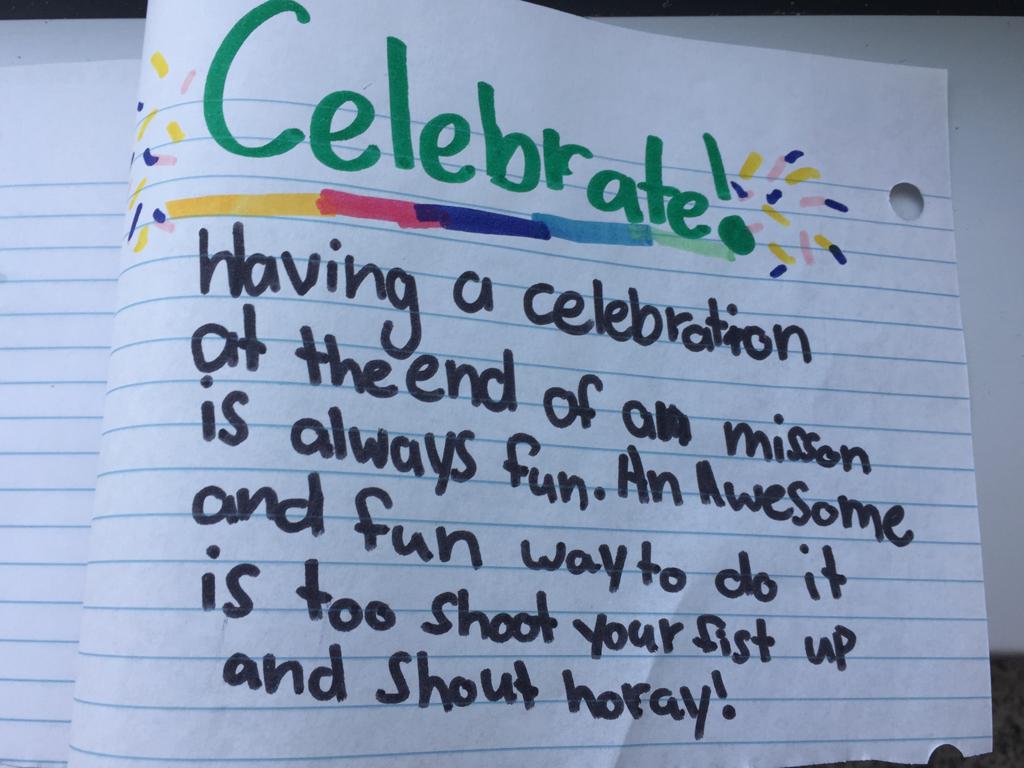 Celebrate!
Having a celebration
at the end of an misson
is always fun. An Awesome
and fun way to do it
is too shoot your fist up
and shout horay!